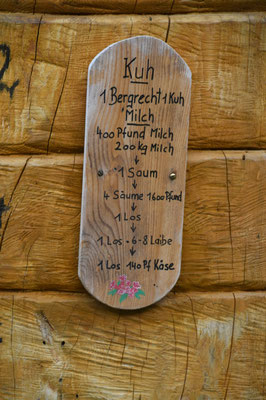 Kuh
1 Bergrecht 1 Kuh
Milch
400 Pfund Milch
200 kg Milch
↓
1 Saum
↓
4 Säume 1600 Pfund
↓
1 Los
↓
1 Los - 6-8 Laibe
↓
1 Los 140 Pf Käse